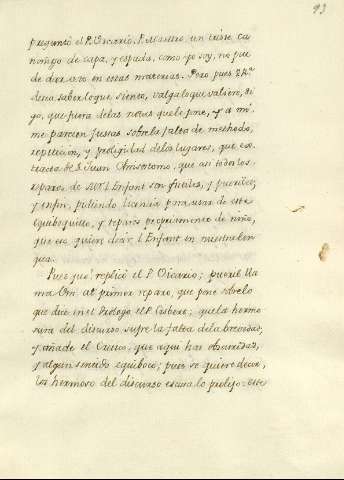 93
preguntó el P. Vicario. P. Maestro, un triste Ca-
nonigo de capa, y espada, como yo soy, no pue-
de dar voto en essas materias. Pero pues V. R.ma
desea saber lo que siento, valga lo que valiere, di-
go, que fuera de las notas que le pone, y a mi
me parecen justas sobre la falta de methodo,
repeticion, y prolixidad de los lugares, que ex-
tracta de S. Juan Chrisostomo, que asi todos los
reparos de Mr. l'Enfant son futiles, y pueriles;
y enfin, pidiendo licencia para usar de este
equiboquillo, y reparos propriamente de niño,
que eso quiere decir l'Enfant en nuestra len-
gua.
Pues què? replicó el P. Vicario; pueril lla-
ma Vm. al primer reparo, que pone sobre lo
que dice en el Prologo el P. Gisbert; que la hermo-
sura del discurso supre la falta de la brevedad,
y añade el Critico, que aqui hai obscuridad,
y algun sentido equiboco; pues se quiere decir,
lo hermoso del discurso escusa lo prolijo: este